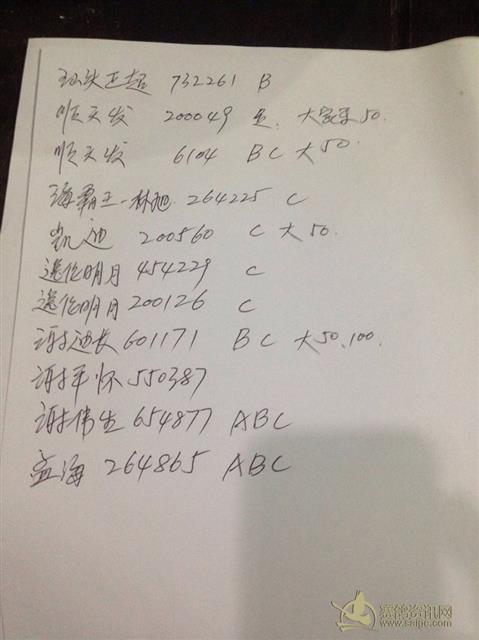 汕头正超 732261 B
顺天发 200049 大家乐50.
顺天发 6104 BC大50.
海霸王-林旭. 264225 C
凯迪 200560 C大50.
逸伦明月 454229 C
逸伦明月 200126 C
谢进长 601171 BC 大50.100.
谢平怀 550387
谢伟生 654877 ABC
益海 264865 ABC
赛鸽资讯网
www.snipc.com